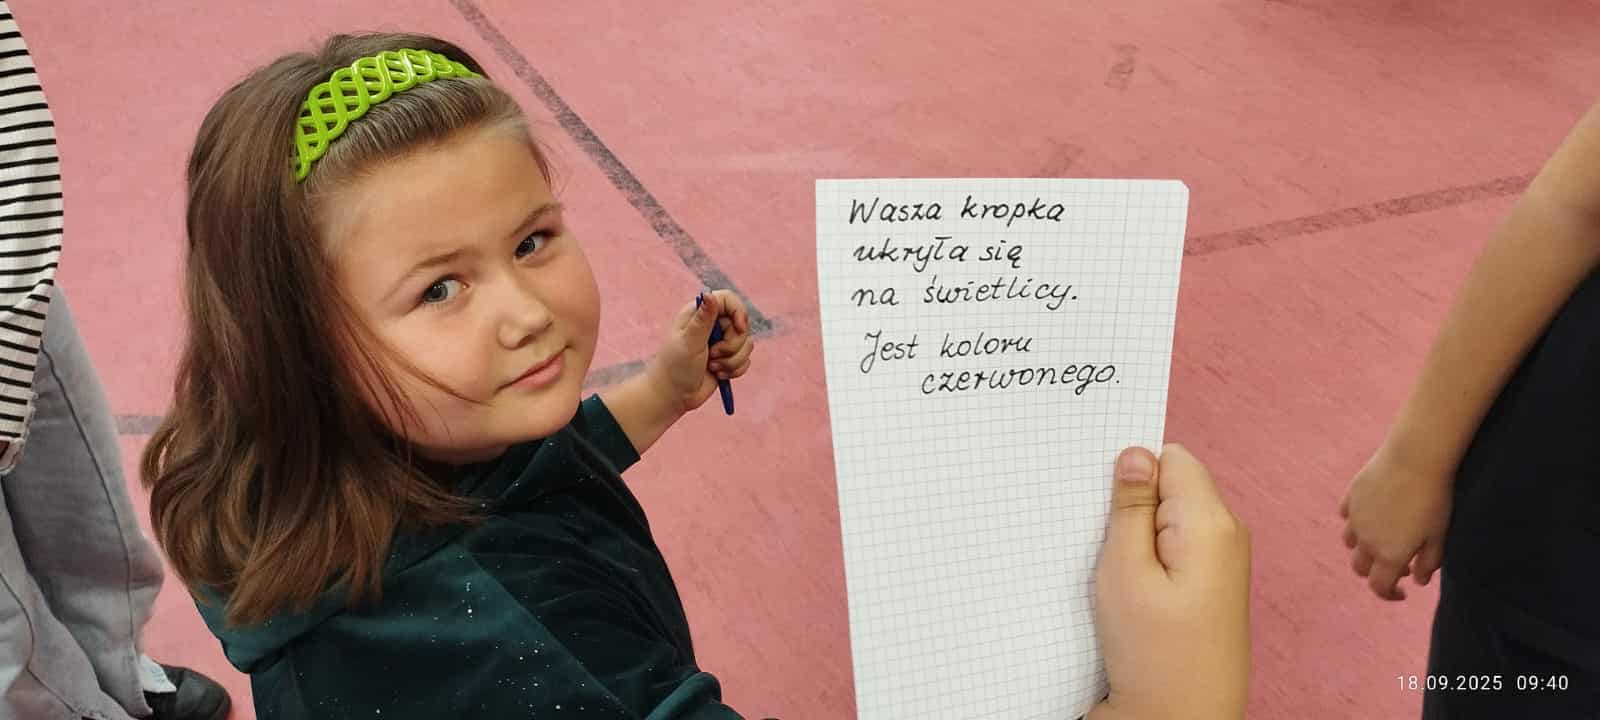 Wasza kropka
ukryła się
na świetlicy.
Jest koloru
czerwonego.
18.09.2025 09:40